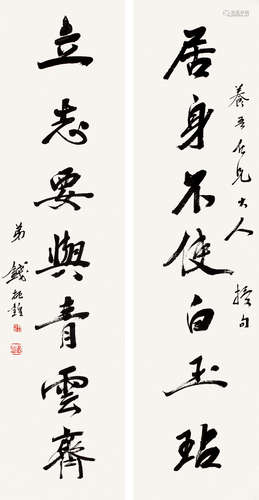 養吾仁兄大人 撰句
居身不使白玉玷
立志要與青雲齊
弟 錢振鍠